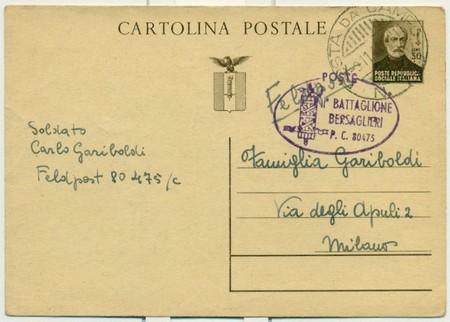 CARTOLINA POSTALE
POSTA DA CAMPO
30
POSTE REPUBBL.
SOCIALE ITALIANA
POSTE
Feldpost
BATTAGLIONE
BERSAGLIERI
P. C. 80475
Soldato
Carlo Gariboldi
Feldpost 80475/c
Famiglia Gariboldi
Via degli Apuli 2
Milano